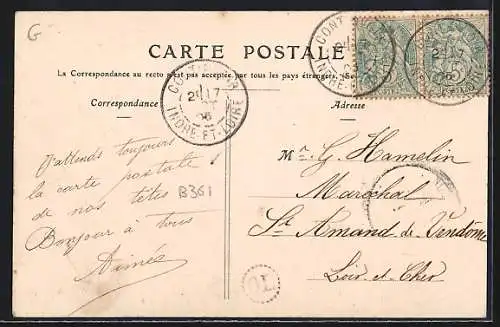 G
CARTE POSTALE
La Correspondance au recto n'est pas acceptée par tous les pays étrangers. (Se
Correspondance
Adresse
INDRE-ET-LOIRE
J'attends toujours
la carte postale !
de nos têtes
Bonjour à tous
Aimés
B361
Mr G. Hamelin
Maréchal
St Amand de Vendôme
Loir et Cher